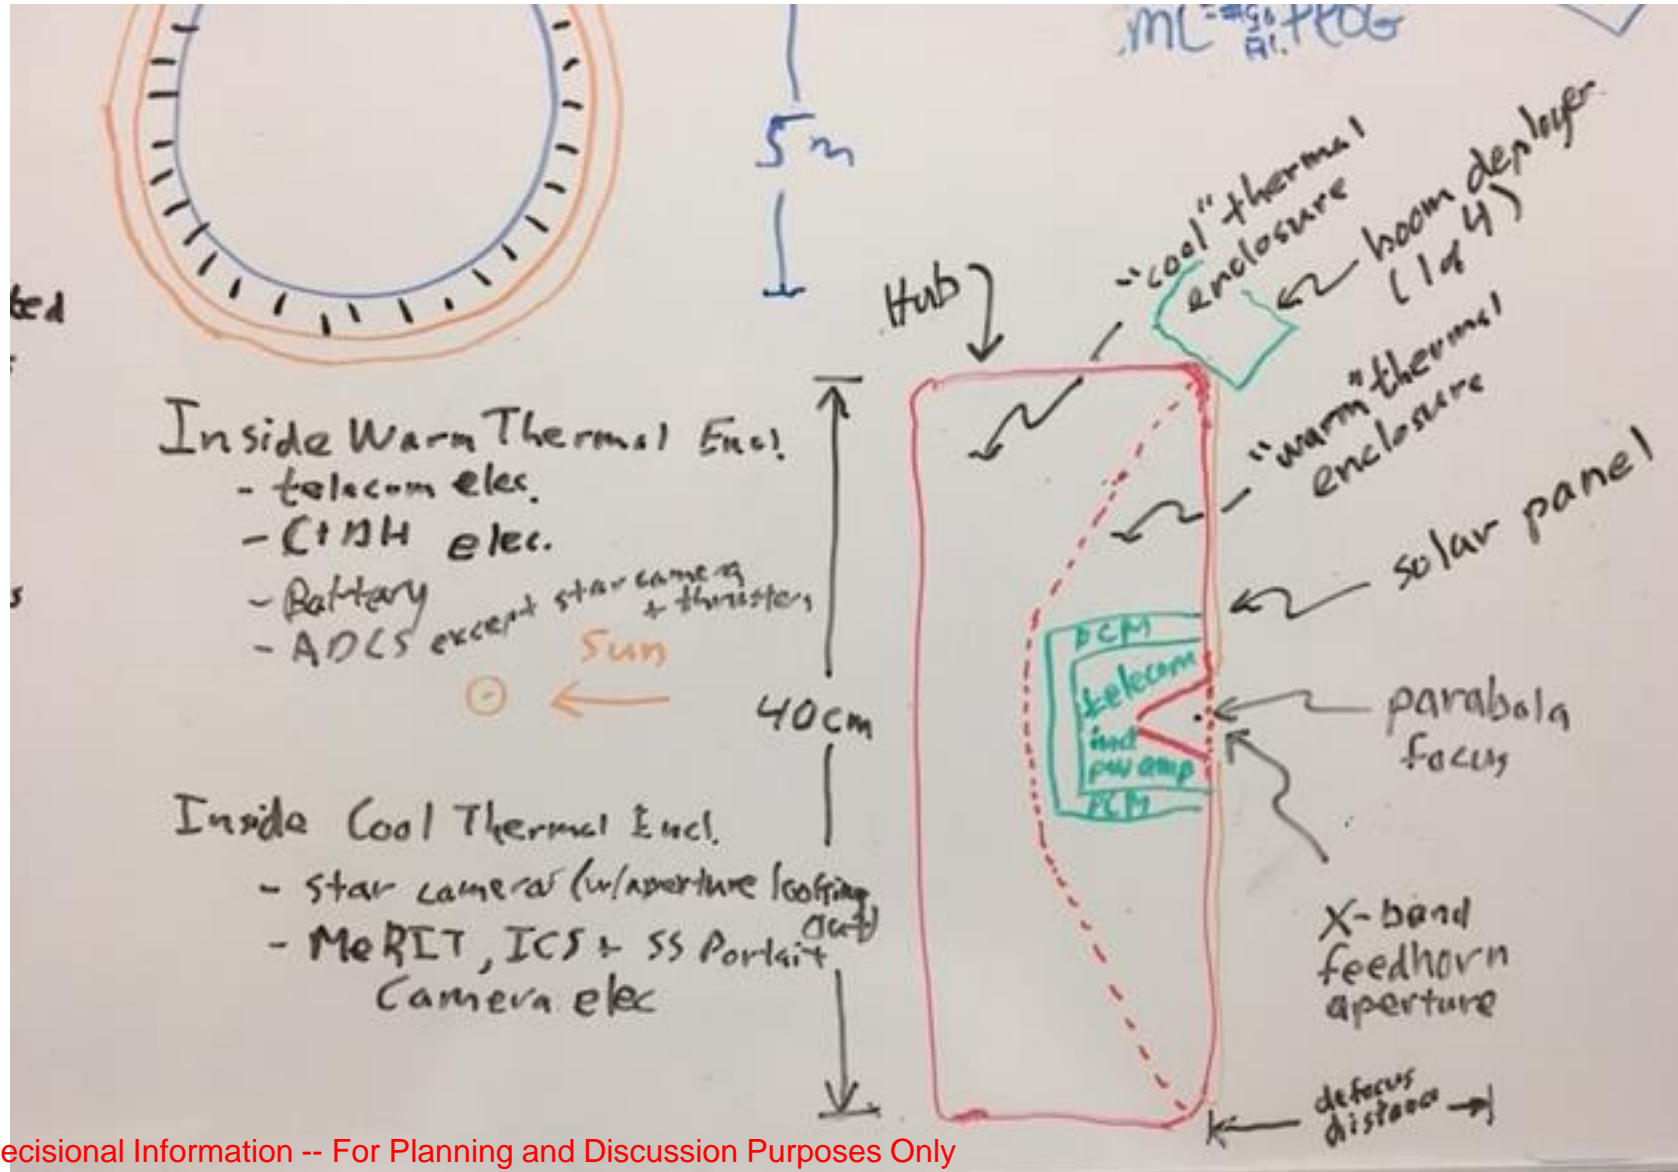 5m
"cool" thermal
enclosure
boom deployer
(1 of 4)
Hub
"warm" thermal
enclosure
solar panel
ted
Inside Warm Thermal Encl.
- telecom elec.
- C+DH elec.
- Battery
- ADCS except star camera
+ thrusters
Sun
40cm
PCM
telecom
incl
pwr amp
PCM
parabola
focus
Inside Cool Thermal Encl.
- star camera (w/aperture looking
out)
- MeRIT, ICS + SS Portait
Camera elec
X-band
feedhorn
aperture
defocus
distance
ecisional Information -- For Planning and Discussion Purposes Only